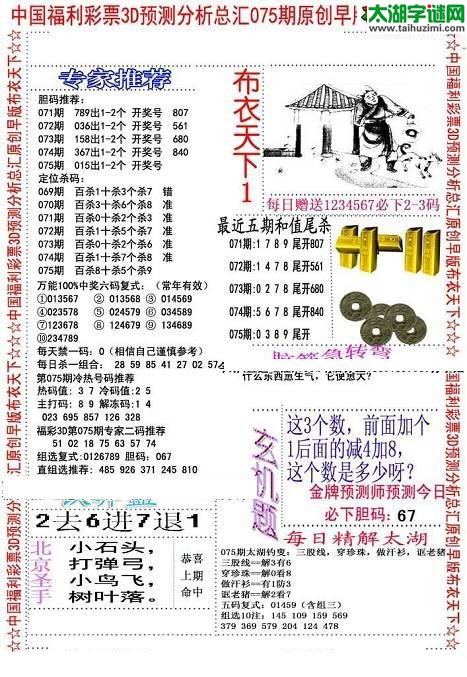 中国福利彩票3D预测分析总汇075期原创早版
太湖字谜网
www.taihuzimi.com
专家推荐
胆码推荐:
071期 789出1-2个 开奖号 807
072期 036出1-2个 开奖号 561
073期 158出1-2个 开奖号 680
074期 367出1-2个 开奖号 840
075期 015出1-2个 开奖号
定位杀码:
069期 百杀1十杀3个杀7 错
070期 百杀3十杀6个杀8 准
071期 百杀0十杀6个杀2 准
072期 百杀3十杀6个杀8 准
073期 百杀0十杀2个杀6 准
074期 百杀6十杀5个杀7 准
075期 百杀8十杀5个杀9
万能100%中奖六码复式:(常年有效)
①013567 ② 013568 ③ 014569
④023578 ⑤ 024579 ⑥ 034679
⑦123678 ⑧ 124679 ⑨ 134689
⑩234789
每天禁一码:0(相信自己谨慎参考)
每日杀一组合: 28 59 85 41 27 02 57
第075期冷热号码推荐
热码值: 3 7 冷码值:2 5
主打码: 8 9 解冻码:1 4
023 695 857 126 328
福彩3D第075期专家二码推荐
51 02 18 75 63 57 74
组选复式:0126789 胆码: 067
直组选推荐: 485 926 371 245 810
布衣天下1
每日赠送1234567必下2-3码
最近五期和值尾杀
071期:1 7 8 9 尾开807
072期:1 4 7 8 尾开561
073期:0 2 7 8 尾开680
074期:5 6 7 8 尾开840
075期:0 3 8 9 尾开
脑筋急转弯
什么东西愈生气,它便愈大?
玄机题
这3个数, 前面加个
1后面的减4加8,
这个数是多少呀?
金牌预测师预测今日
必下胆码: 67
2去6进7退1
北京圣手
小石头,
打弹弓,
小鸟飞,
树叶落。
恭喜
上期
命中
每日精解太湖
075期太湖钓叟: 三股线, 穿珍珠, 做汗衫, 讴老猪
三股线==解3有6
穿珍珠==解0看8
做汗衫==有1防3
讴老猪==解2看7
五码复式: 01459 (含组三)
组选10注: 145 109 159 569
379 369 579 204 124 478
☆☆中国福利彩票3D预测分析总汇原创早版布衣天下☆☆